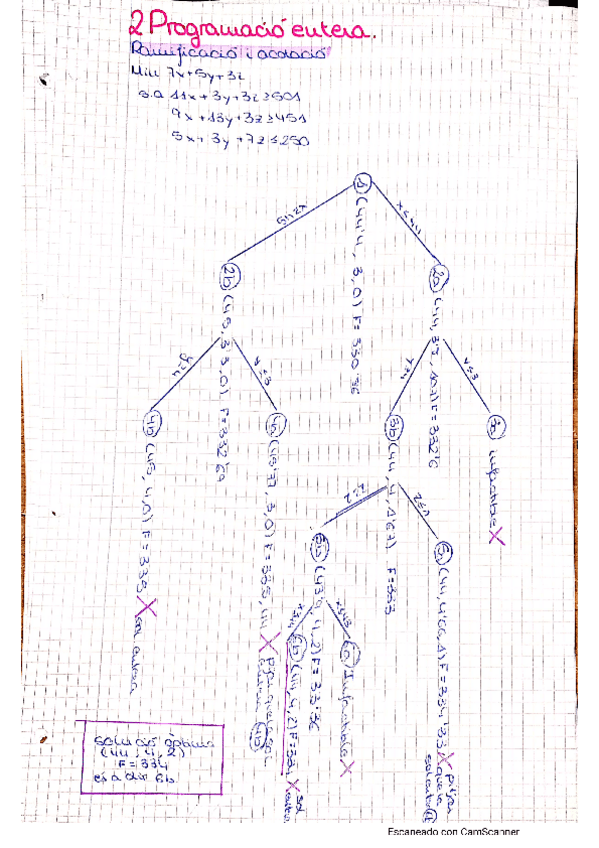 2 Programació entera.
Ramificació i acotació
Min 7x+5y+3z
s.a 11x+3y+3z≥501
9x+13y+3z≥451
5x+3y+7z≤250
1 (44'4, 3,0) F=330'36
x≥45
x≤44
2b (45, 3'3, 0) F=332
2a (44, 3'7,
y≥4
y≤3
y≥4
y≤3
4b (45, 4, 0) F=335, X sol entera
4a
3,0) F=335,44 X
3b (44, 4, 1'67) F=333
3a Infactible X
z≥2
z≤1
5b
4, 2) F=
5a (44, 4'66, 1) F=334'33 X
x≤43
6b (44, 4, 2) F=334 X sol entera
6a Infactible X
Solució òptima
(44, 4, 2)
F=334
és a dir 6b
Escaneado con CamScanner